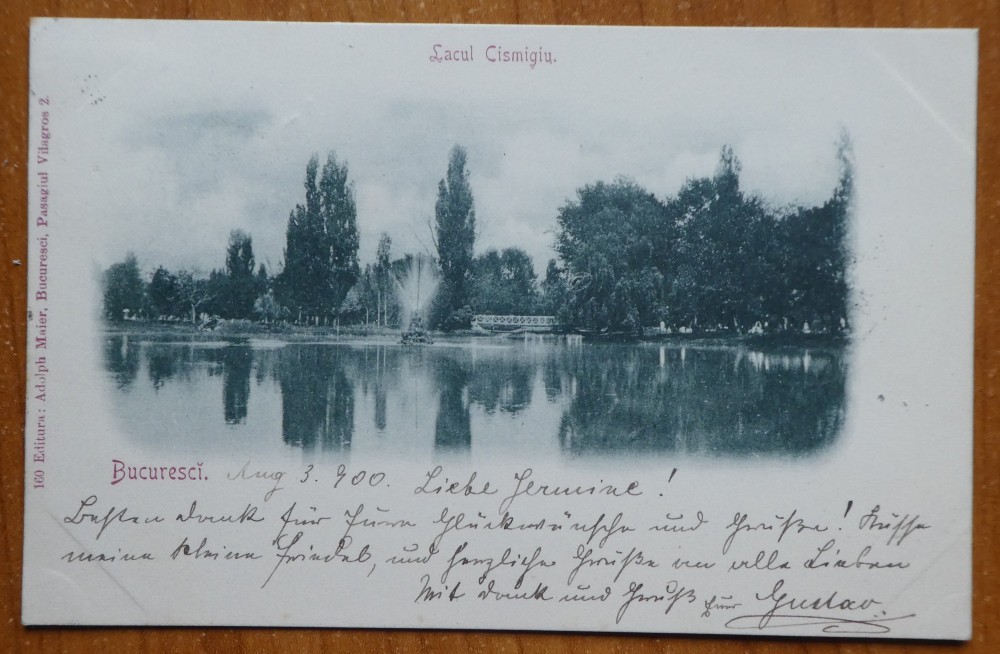 Lacul Cismigiu.
160 Editura: Adolph Maier, Bucuresci, Pasagiul Vilagros 2
Bucurescĭ. Aug 3. 900. Liebe Hermine!
Besten Dank für Eure Glückwünsche und Grüße! Küsse
meine kleine Friedel, und herzliche Grüße an alle Lieben
Mit Dank und Gruß Euer Gustav